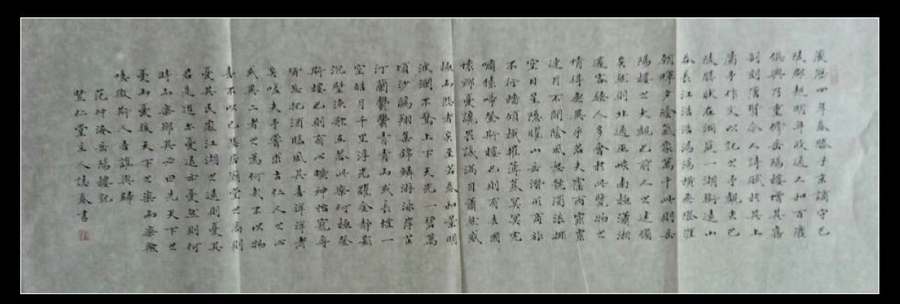 慶曆四年春滕子京謫守巴
陵郡越明年政通人和百廢
俱興乃重修岳陽樓增其舊
制刻唐賢今人詩賦於其上
屬予作文以記之予觀夫巴
陵勝狀在洞庭一湖銜遠山
吞長江浩浩湯湯橫無際涯
朝暉夕陰氣象萬千此則岳
陽樓之大觀也前人之述備
矣然則北通巫峽南極瀟湘
遷客騷人多會於此覽物之
情得無異乎若夫霪雨霏霏
連月不開陰風怒號濁浪排
空日星隱曜山岳潛形商旅
不行檣傾楫摧薄暮冥冥虎
嘯猿啼登斯樓也則有去國
懷鄉憂讒畏譏滿目蕭然感
極而悲者矣至若春和景明
波瀾不驚上下天光一碧萬
頃沙鷗翔集錦鱗游泳岸芷
汀蘭鬱鬱青青而或長煙一
空皓月千里浮光躍金靜影
沉璧漁歌互答此樂何極登
斯樓也則有心曠神怡寵辱
皆忘把酒臨風其喜洋洋者
矣嗟夫予嘗求古仁人之心
或異二者之為何哉不以物
喜不以己悲居廟堂之高則
憂其民處江湖之遠則憂其
君是進亦憂退亦憂然則何
時而樂耶其必曰先天下之
憂而憂後天下之樂而樂歟
噫微斯人吾誰與歸
范仲淹岳陽樓記
仁堂主人春書